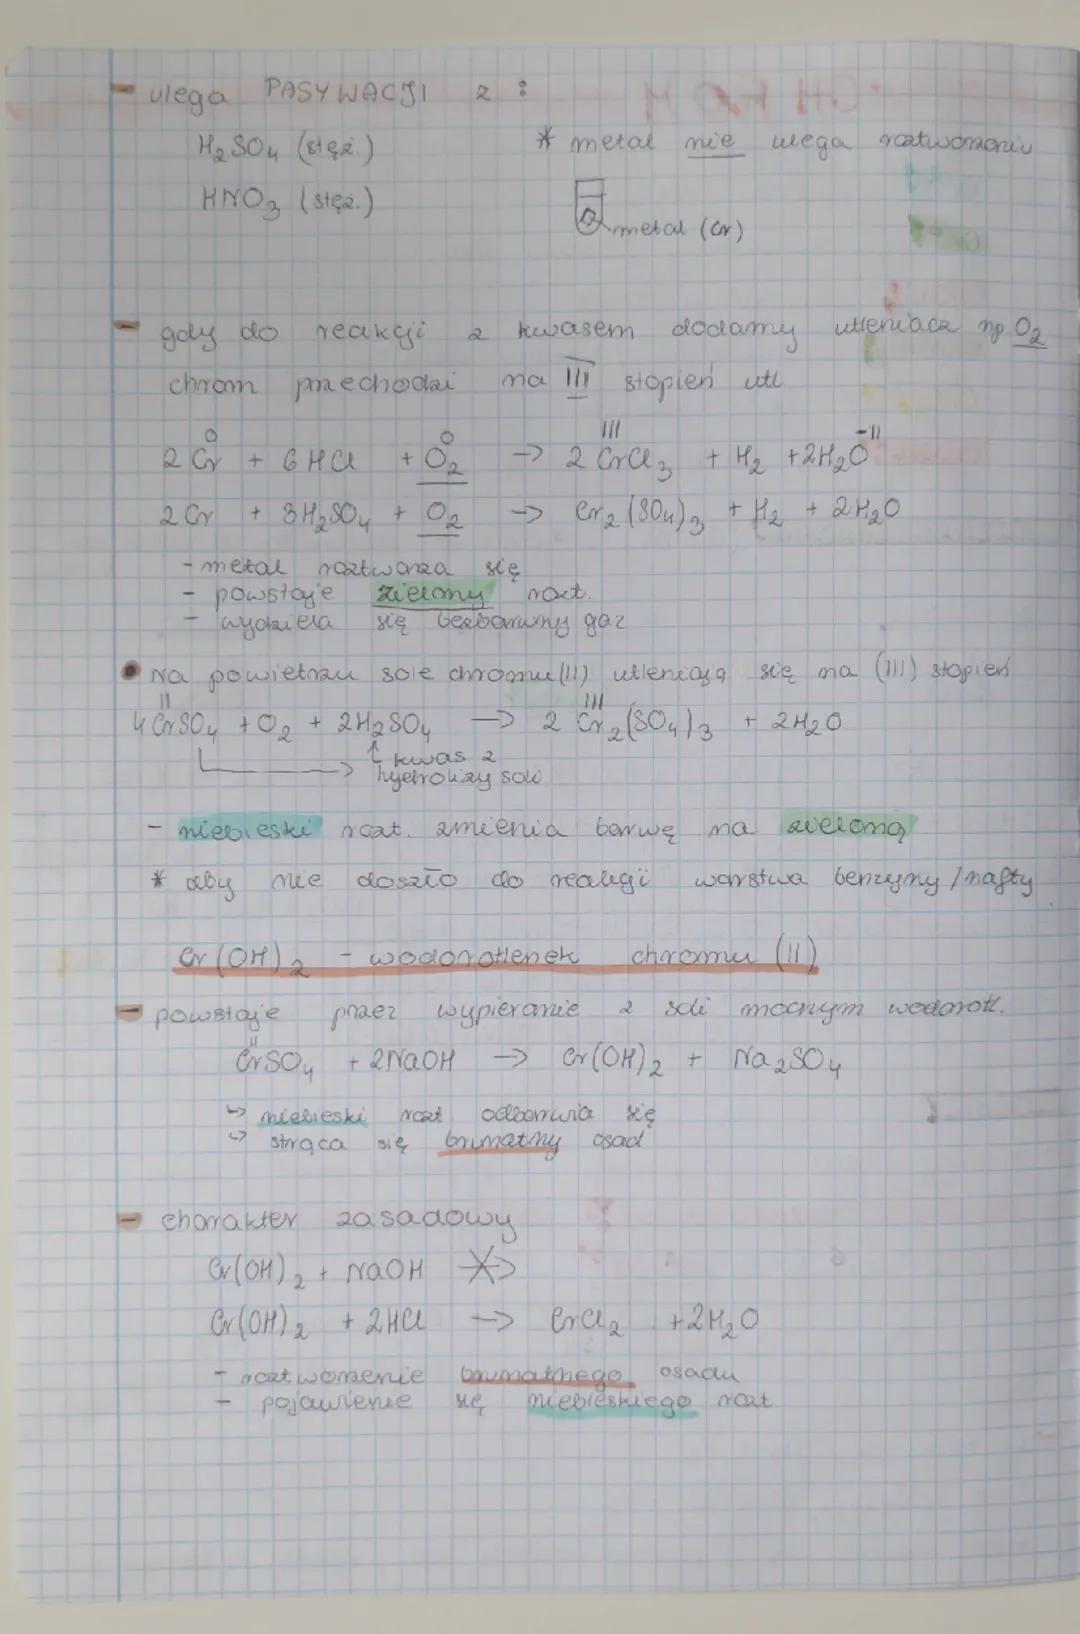 - ulega PASYWACJI z :
H₂SO₄ (stęż.) * metal nie ulega roztworzeniu
HNO₃ (stęż.)
metal (Cr)
- gdy do reakcji z kwasem dodamy utleniacz np O₂
chrom przechodzi na III stopień utl
0 0 III -II
2 Cr + 6 HCl + O₂ -> 2 CrCl₃ + H₂ + 2H₂O
2 Cr + 3H₂SO₄ + O₂ -> Cr₂(SO₄)₃ + H₂ + 2H₂O
- metal roztwarza się
- powstaje zielony rozt.
- wydziela się bezbarwny gaz
• Na powietrzu sole chromu (II) utleniają się na (III) stopień
II III
4 CrSO₄ + O₂ + 2H₂SO₄ -> 2 Cr₂(SO₄)₃ + 2H₂O
↑ kwas z
-> hydrolizy soli
- niebieski rozt. zmienia barwę na zieloną
* aby nie doszło do reakcji warstwa benzyny / nafty
Cr(OH)₂ - wodorotlenek chromu (II)
- powstaje przez wypieranie z soli mocnym wodorotl.
II
CrSO₄ + 2NaOH -> Cr(OH)₂ + Na₂SO₄
↳ niebieski rozt odbarwia się
↳ strąca się brunatny osad
- charakter zasadowy
Cr(OH)₂ + NaOH -X->
Cr(OH)₂ + 2HCl -> CrCl₂ + 2H₂O
- roztworzenie brunatnego osadu
- pojawienie się niebieskiego rozt